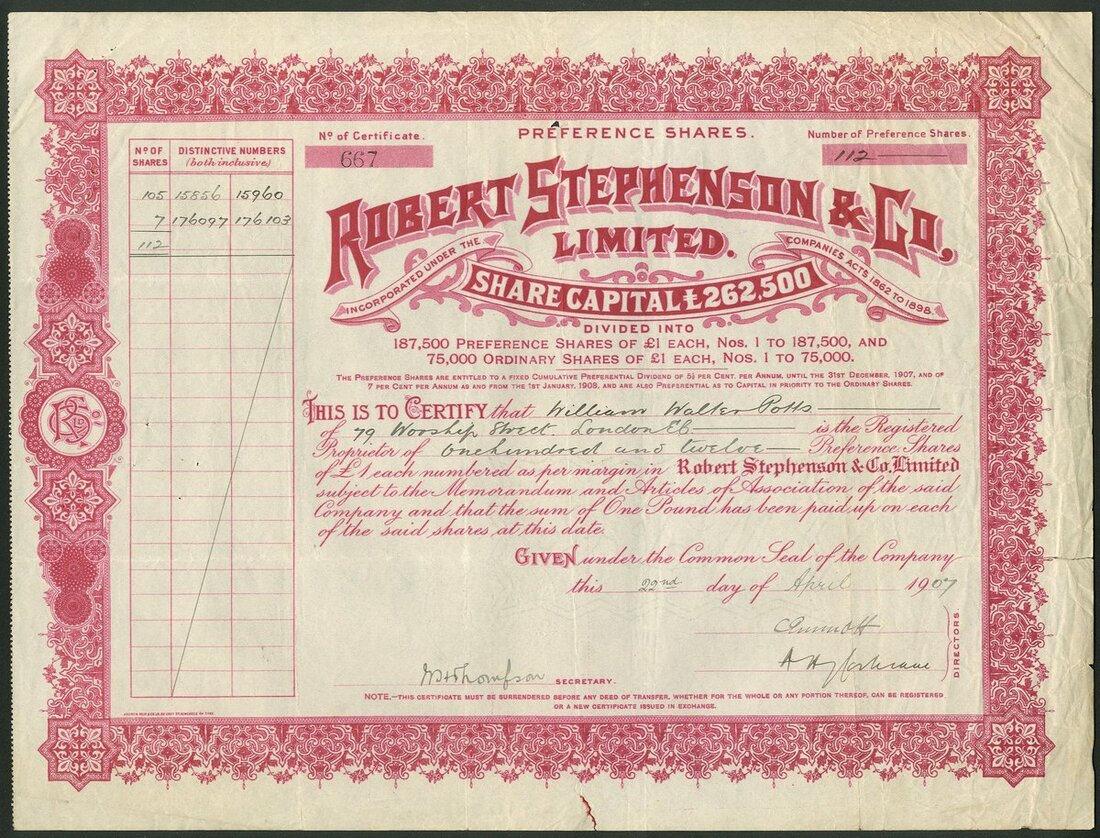 Nº of Certificate.
667
PREFERENCE SHARES.
Number of Preference Shares.
112
Nº OF SHARES
DISTINCTIVE NUMBERS
(both inclusive)
105 15856 15960
7 176097 176103
112
ROBERT STEPHENSON & CO.
LIMITED.
INCORPORATED UNDER THE COMPANIES ACTS 1862 TO 1898.
SHARE CAPITAL £262,500
DIVIDED INTO
187,500 PREFERENCE SHARES OF £1 EACH, NOS. 1 TO 187,500, AND
75,000 ORDINARY SHARES OF £1 EACH, NOS. 1 TO 75,000.
THE PREFERENCE SHARES ARE ENTITLED TO A FIXED CUMULATIVE PREFERENTIAL DIVIDEND OF 5½ PER CENT. PER ANNUM, UNTIL THE 31ST DECEMBER, 1907, AND OF
7 PER CENT PER ANNUM AS AND FROM THE 1ST JANUARY, 1908, AND ARE ALSO PREFERENTIAL AS TO CAPITAL IN PRIORITY TO THE ORDINARY SHARES.
THIS IS TO CERTIFY that William Walter Potts
of 79 Worship Street. London EC is the Registered
Proprietor of One hundred and twelve Preference Shares
of £1 each numbered as per margin in Robert Stephenson & Co. Limited
subject to the Memorandum and Articles of Association of the said
Company and that the sum of One Pound has been paid up on each
of the said shares at this date.
GIVEN under the Common Seal of the Company
this 22nd day of April 1907
DIRECTORS.
Thompson SECRETARY.
NOTE.—THIS CERTIFICATE MUST BE SURRENDERED BEFORE ANY DEED OF TRANSFER, WHETHER FOR THE WHOLE OR ANY PORTION THEREOF, CAN BE REGISTERED
OR A NEW CERTIFICATE ISSUED IN EXCHANGE.